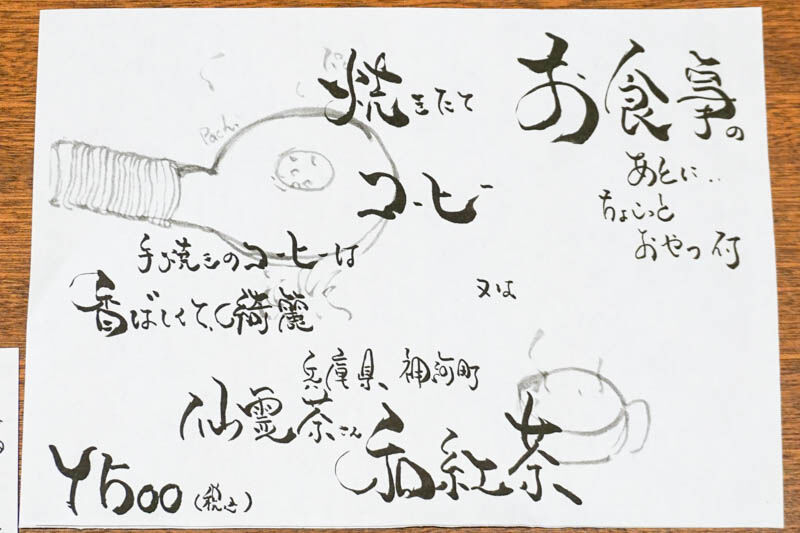 お食事の
あとに..
ちょこっと
おやつ付
焼きたて
コーヒー
Pachi
手焼きのコーヒーは
香ばしくて、綺麗
又は
兵庫県 神河町
仙霊茶さん
和紅茶
¥500(税込)